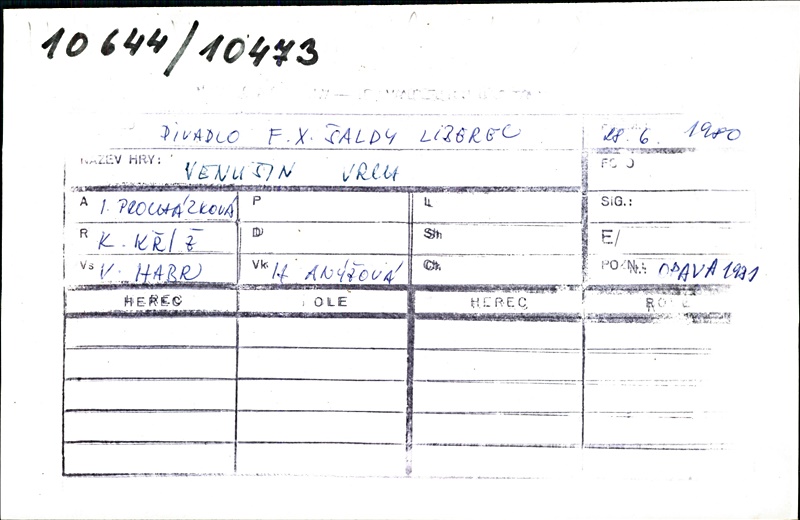 10644/10473
DIVADLO F. X. ŠALDY LIBEREC 28. 6. 1980
NÁZEV HRY: VENUŠIN VRCH
A I. PROCHÁZKOVÁ P L SIG.:
R K. KŘÍŽ D Sh E/
Vs V. HABR Vk H ANÝŽOVÁ Ch. POZN.: OPAVA 1981
HEREC OLE HEREC RO E